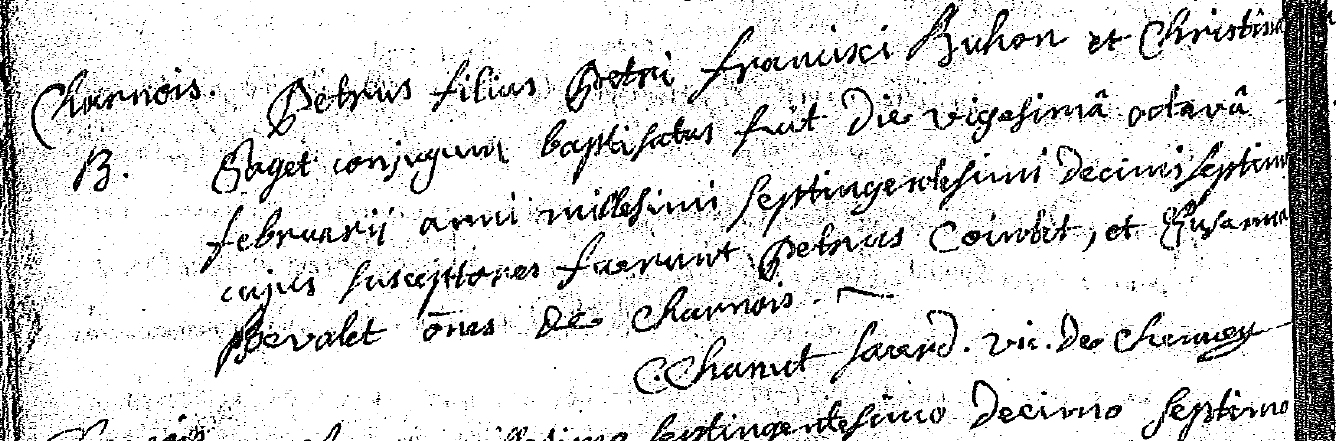 Charnois. Petrus filius Petri francisci Buhon et Christina
B. Paget conjugum baptisatus fuit die vigesimâ octavâ
februarii anni millesimi septingentesimi decimi septimi
cujus susceptores fuerunt Petrus Coinbit, et Susanna
Bevalet ões de Charnois.
C. Chamct sacerd. vic. de Chemey
septingentesimo decimo septimo